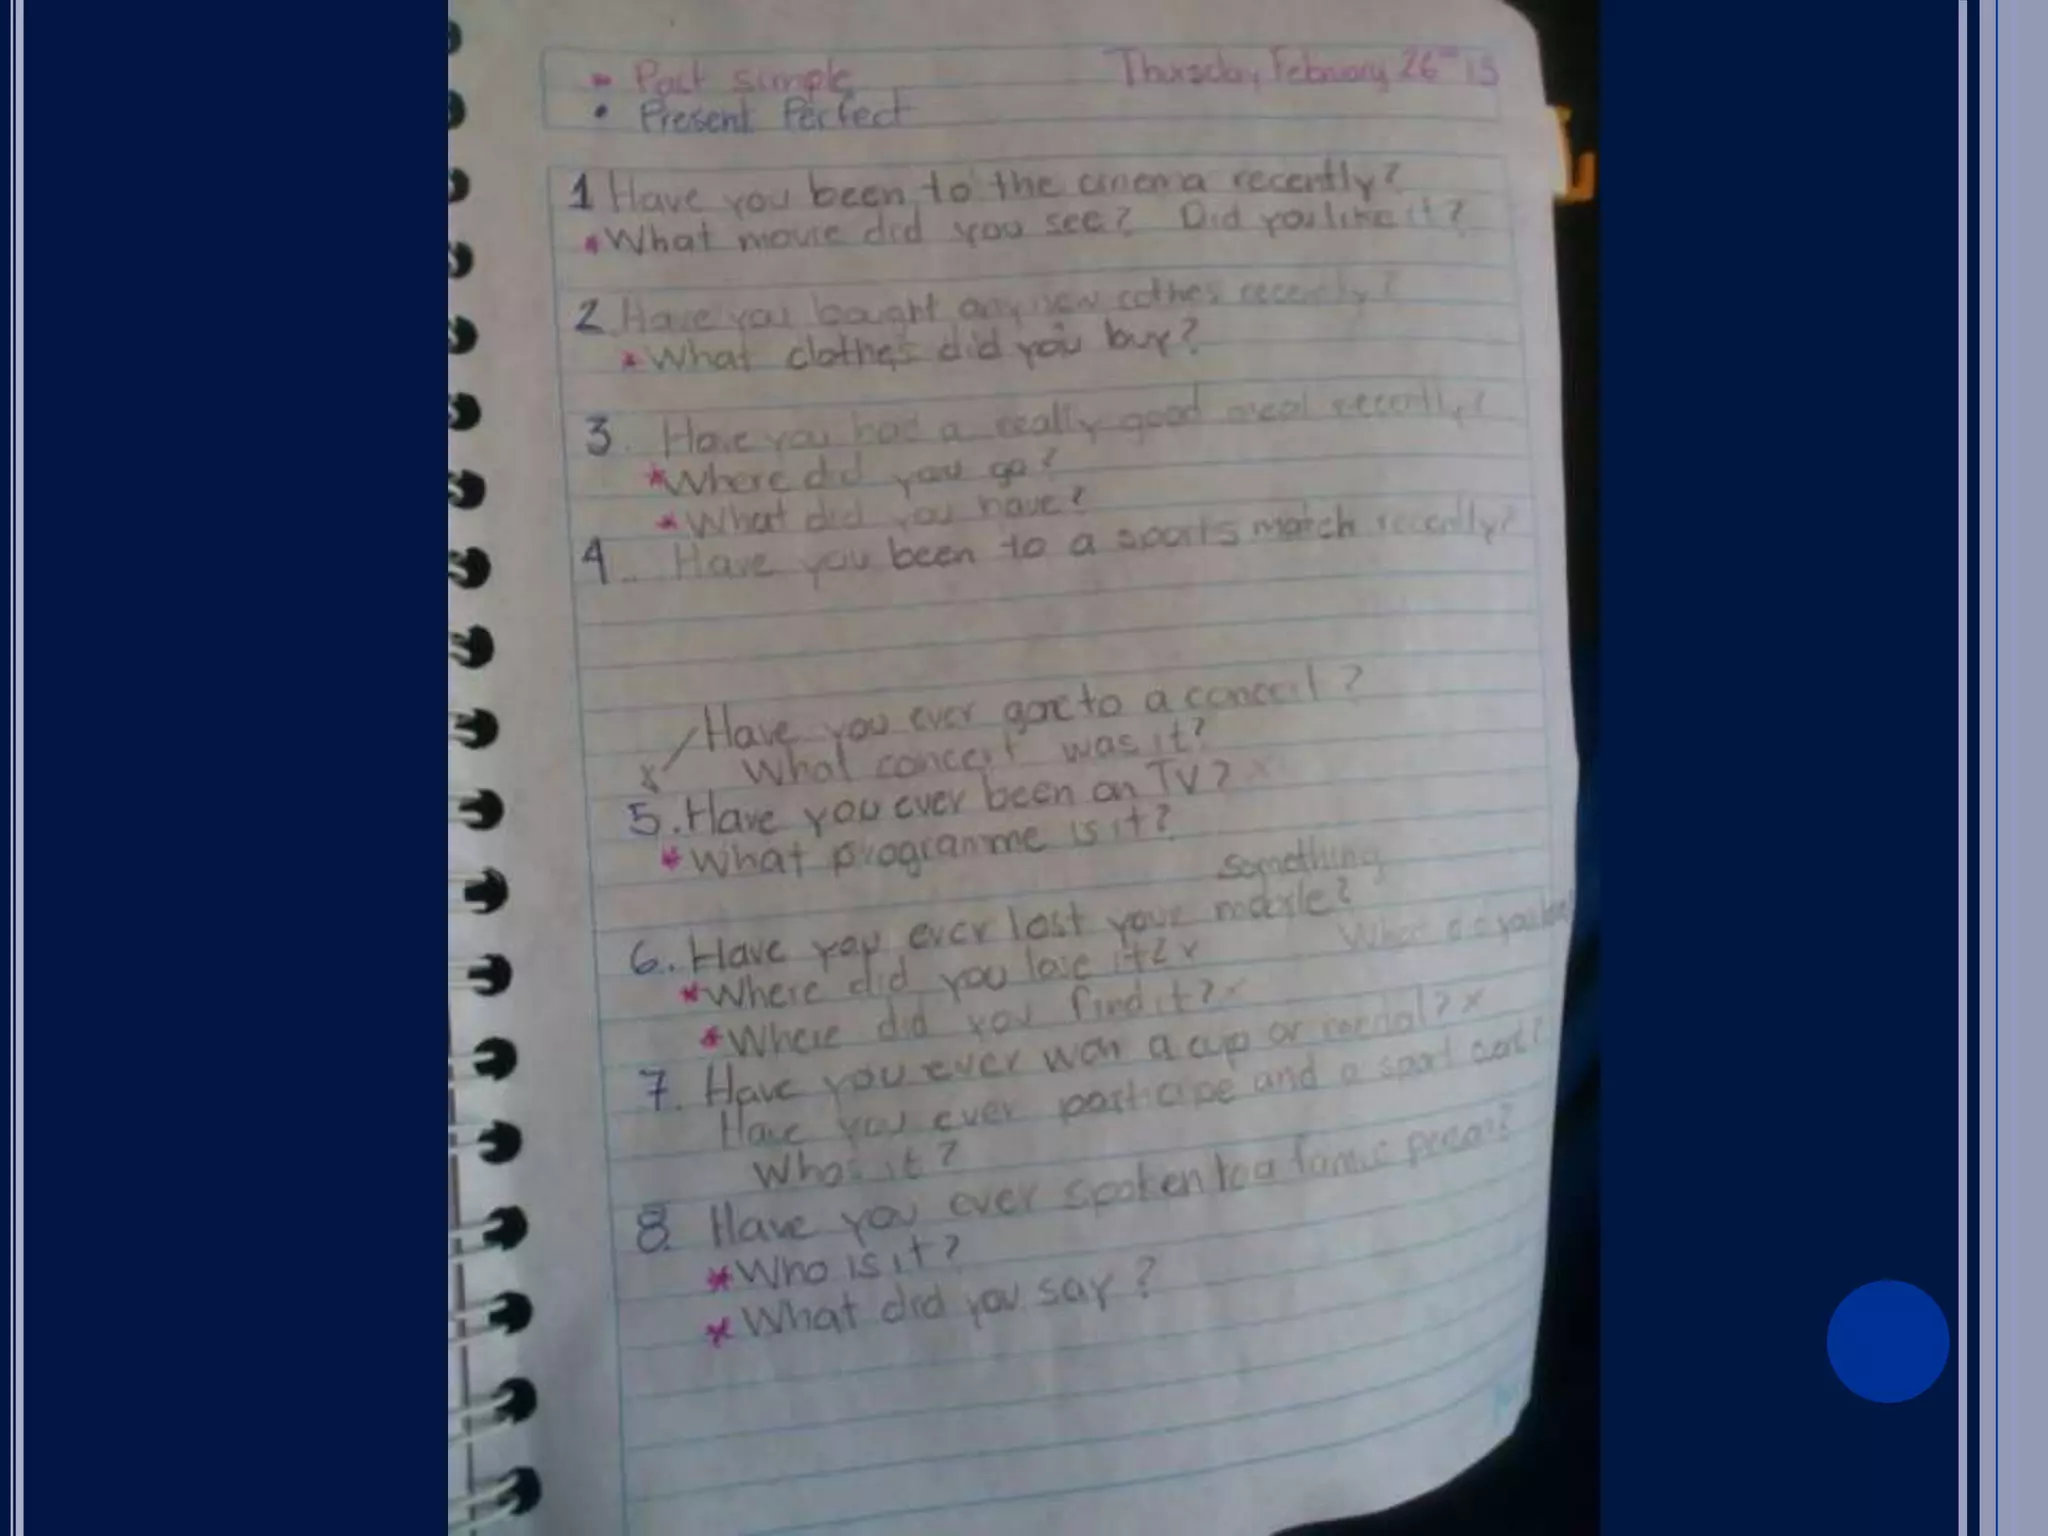 - Past simple
Thursday, February 26th 15
• Present Perfect
1 Have you been to the cinema recently?
* What movie did you see? Did you like it?
2 Have you bought any new cothes recently?
* What clothes did you buy?
3. Have you had a really good meal recently?
* Where did you go?
* What did you have?
4.. Have you been to a sports match recently?
Have you ever gone to a concert?
What concert was it?
5. Have you ever been on TV? x
* What programme is it?
something
6. Have you ever lost your mobile?
* Where did you lose it? x
* Where did you find it? x
7. Have you ever won a cup or medal? x
Have you ever participe and a sport
Whos it?
8. Have you ever spoken to a famous person?
* Who is it?
* What did you say?